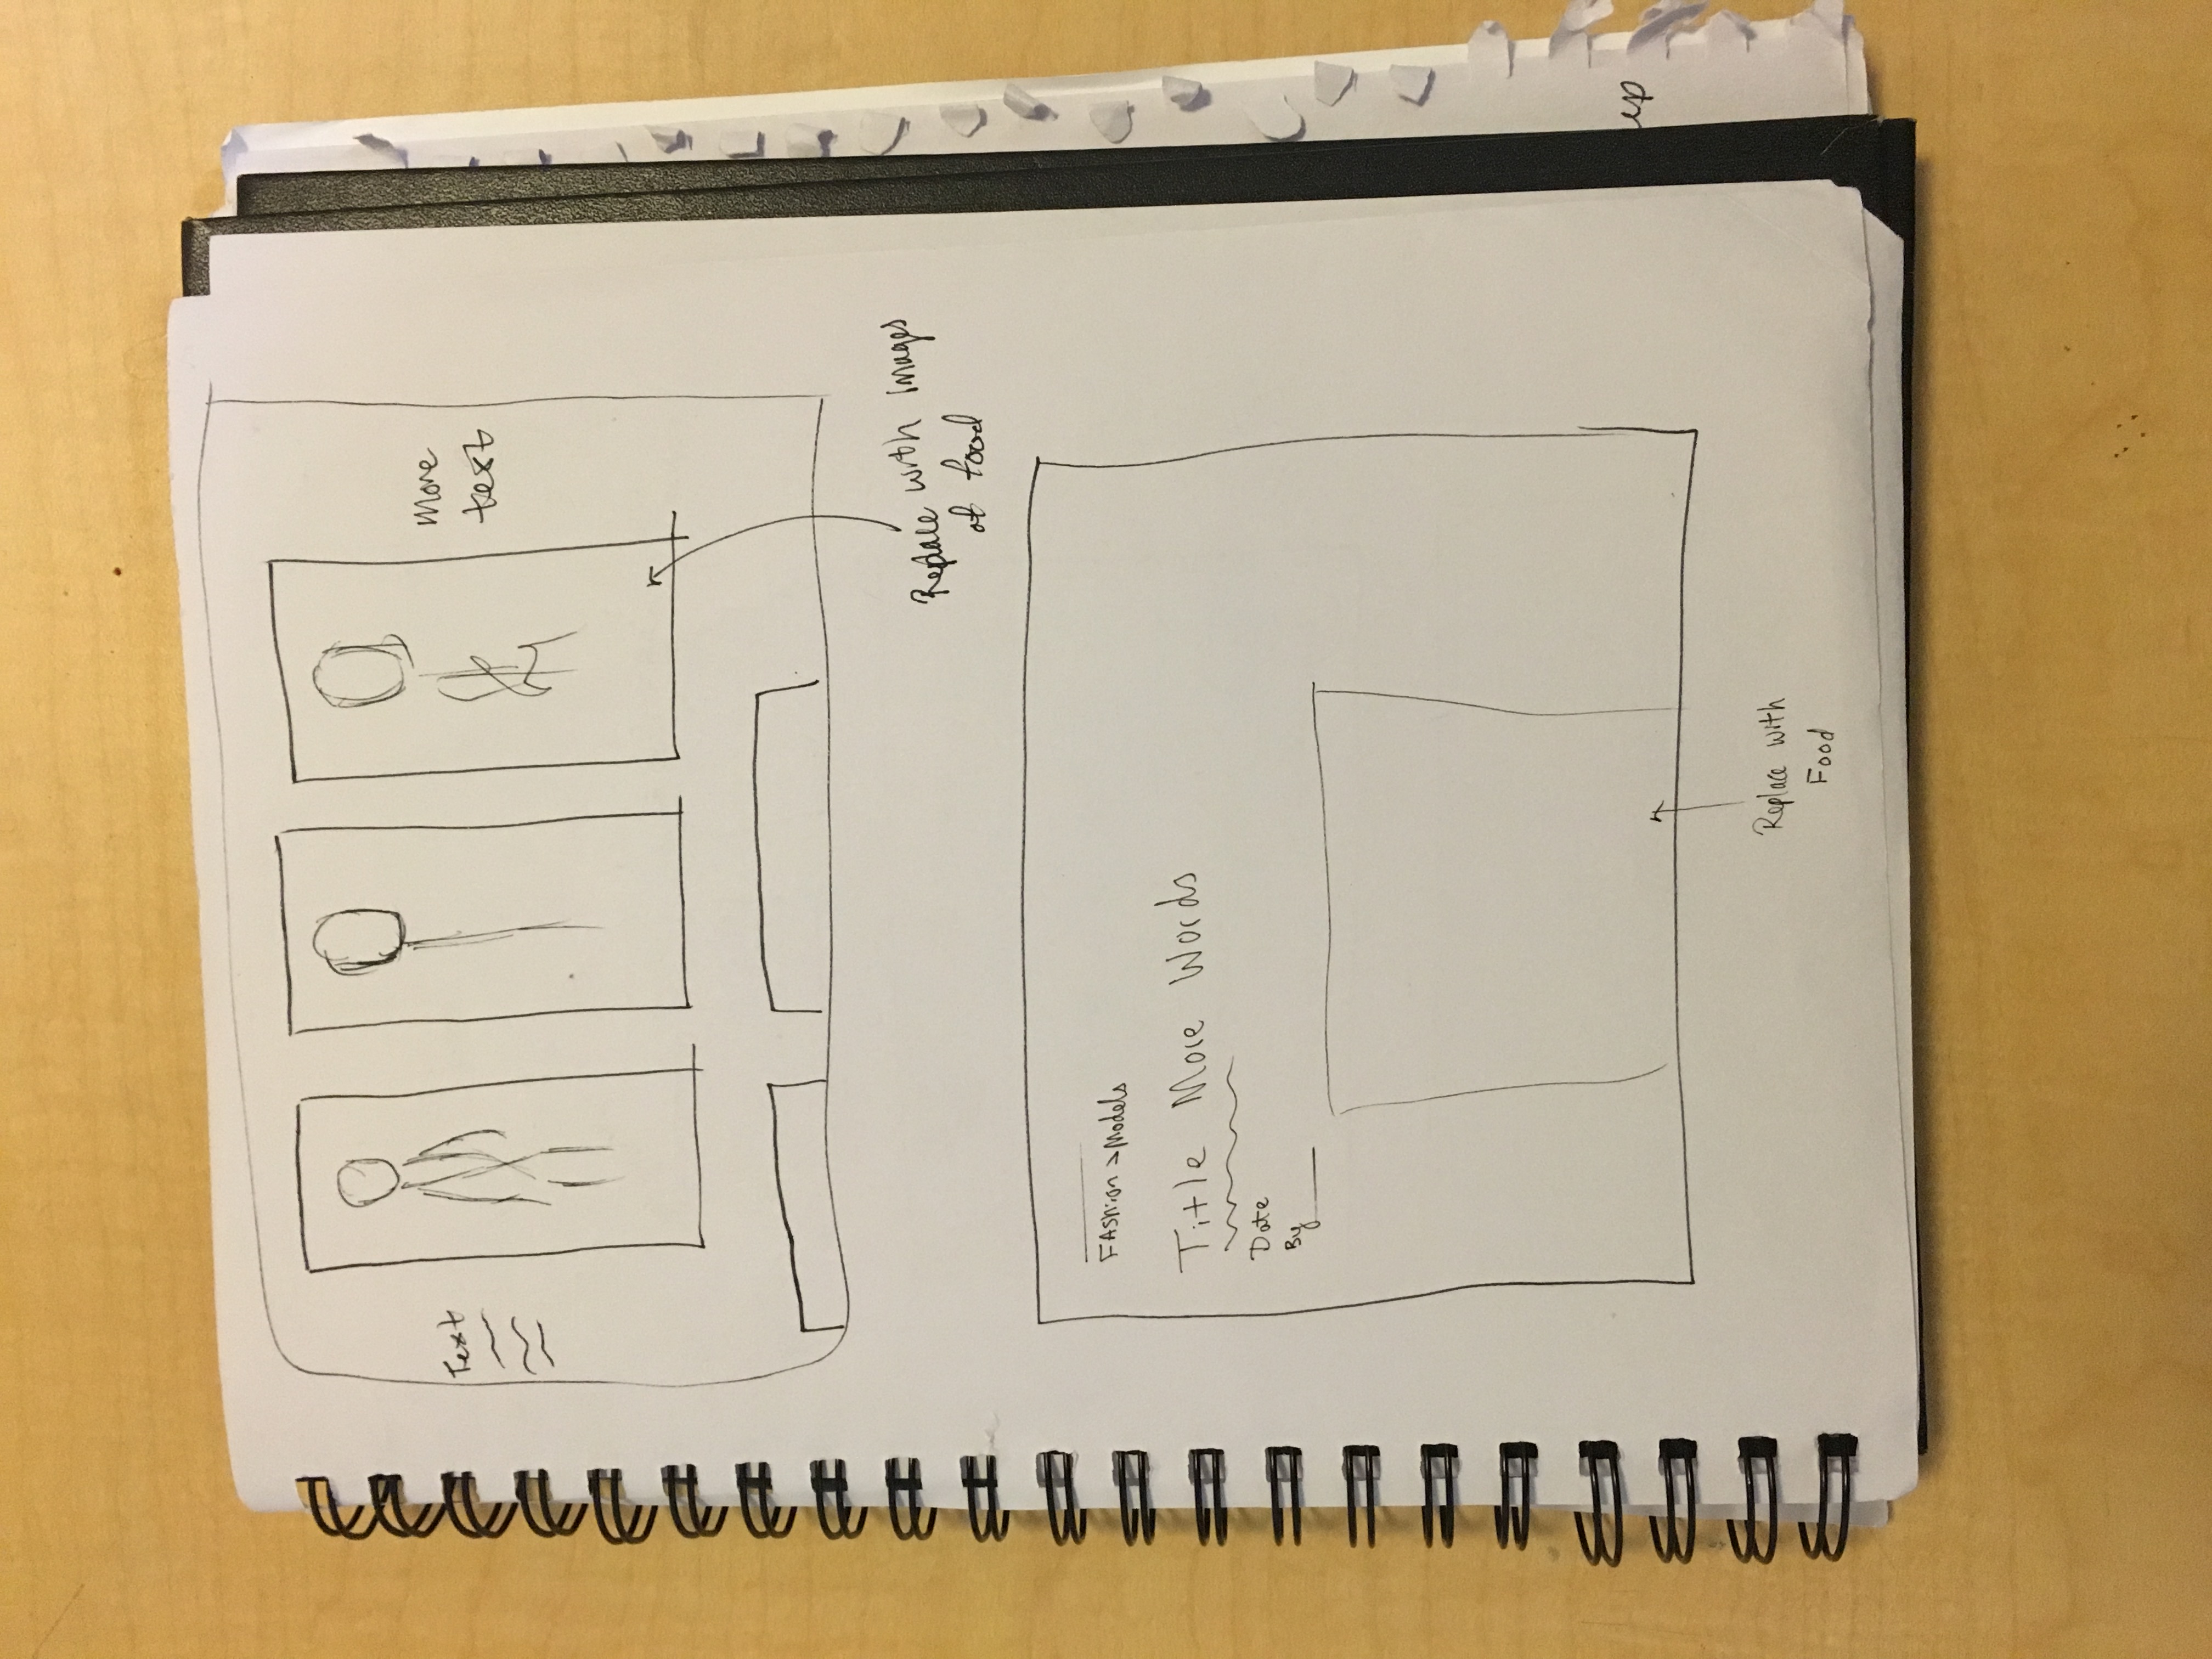 Text
More
text
Replace with images
of food
FAshion > Models
Title More Words
Date
By
Replace with
Food